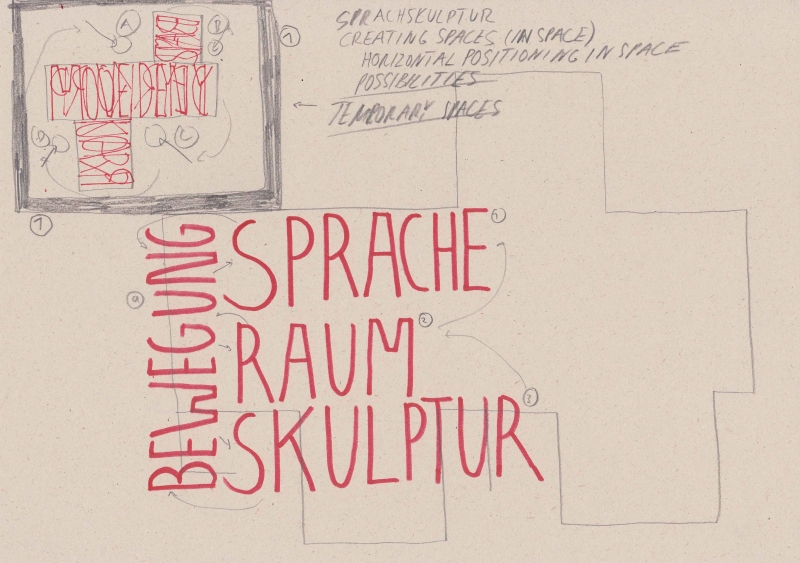 SPRACHSKULPTUR
CREATING SPACES (IN SPACE)
HORIZONTAL POSITIONING IN SPACE
POSSIBILITIES
TEMPORARY SPACES
A
B
C
1
1
BEWEGUNG
SPRACHE
RAUM
SKULPTUR
1
2
3